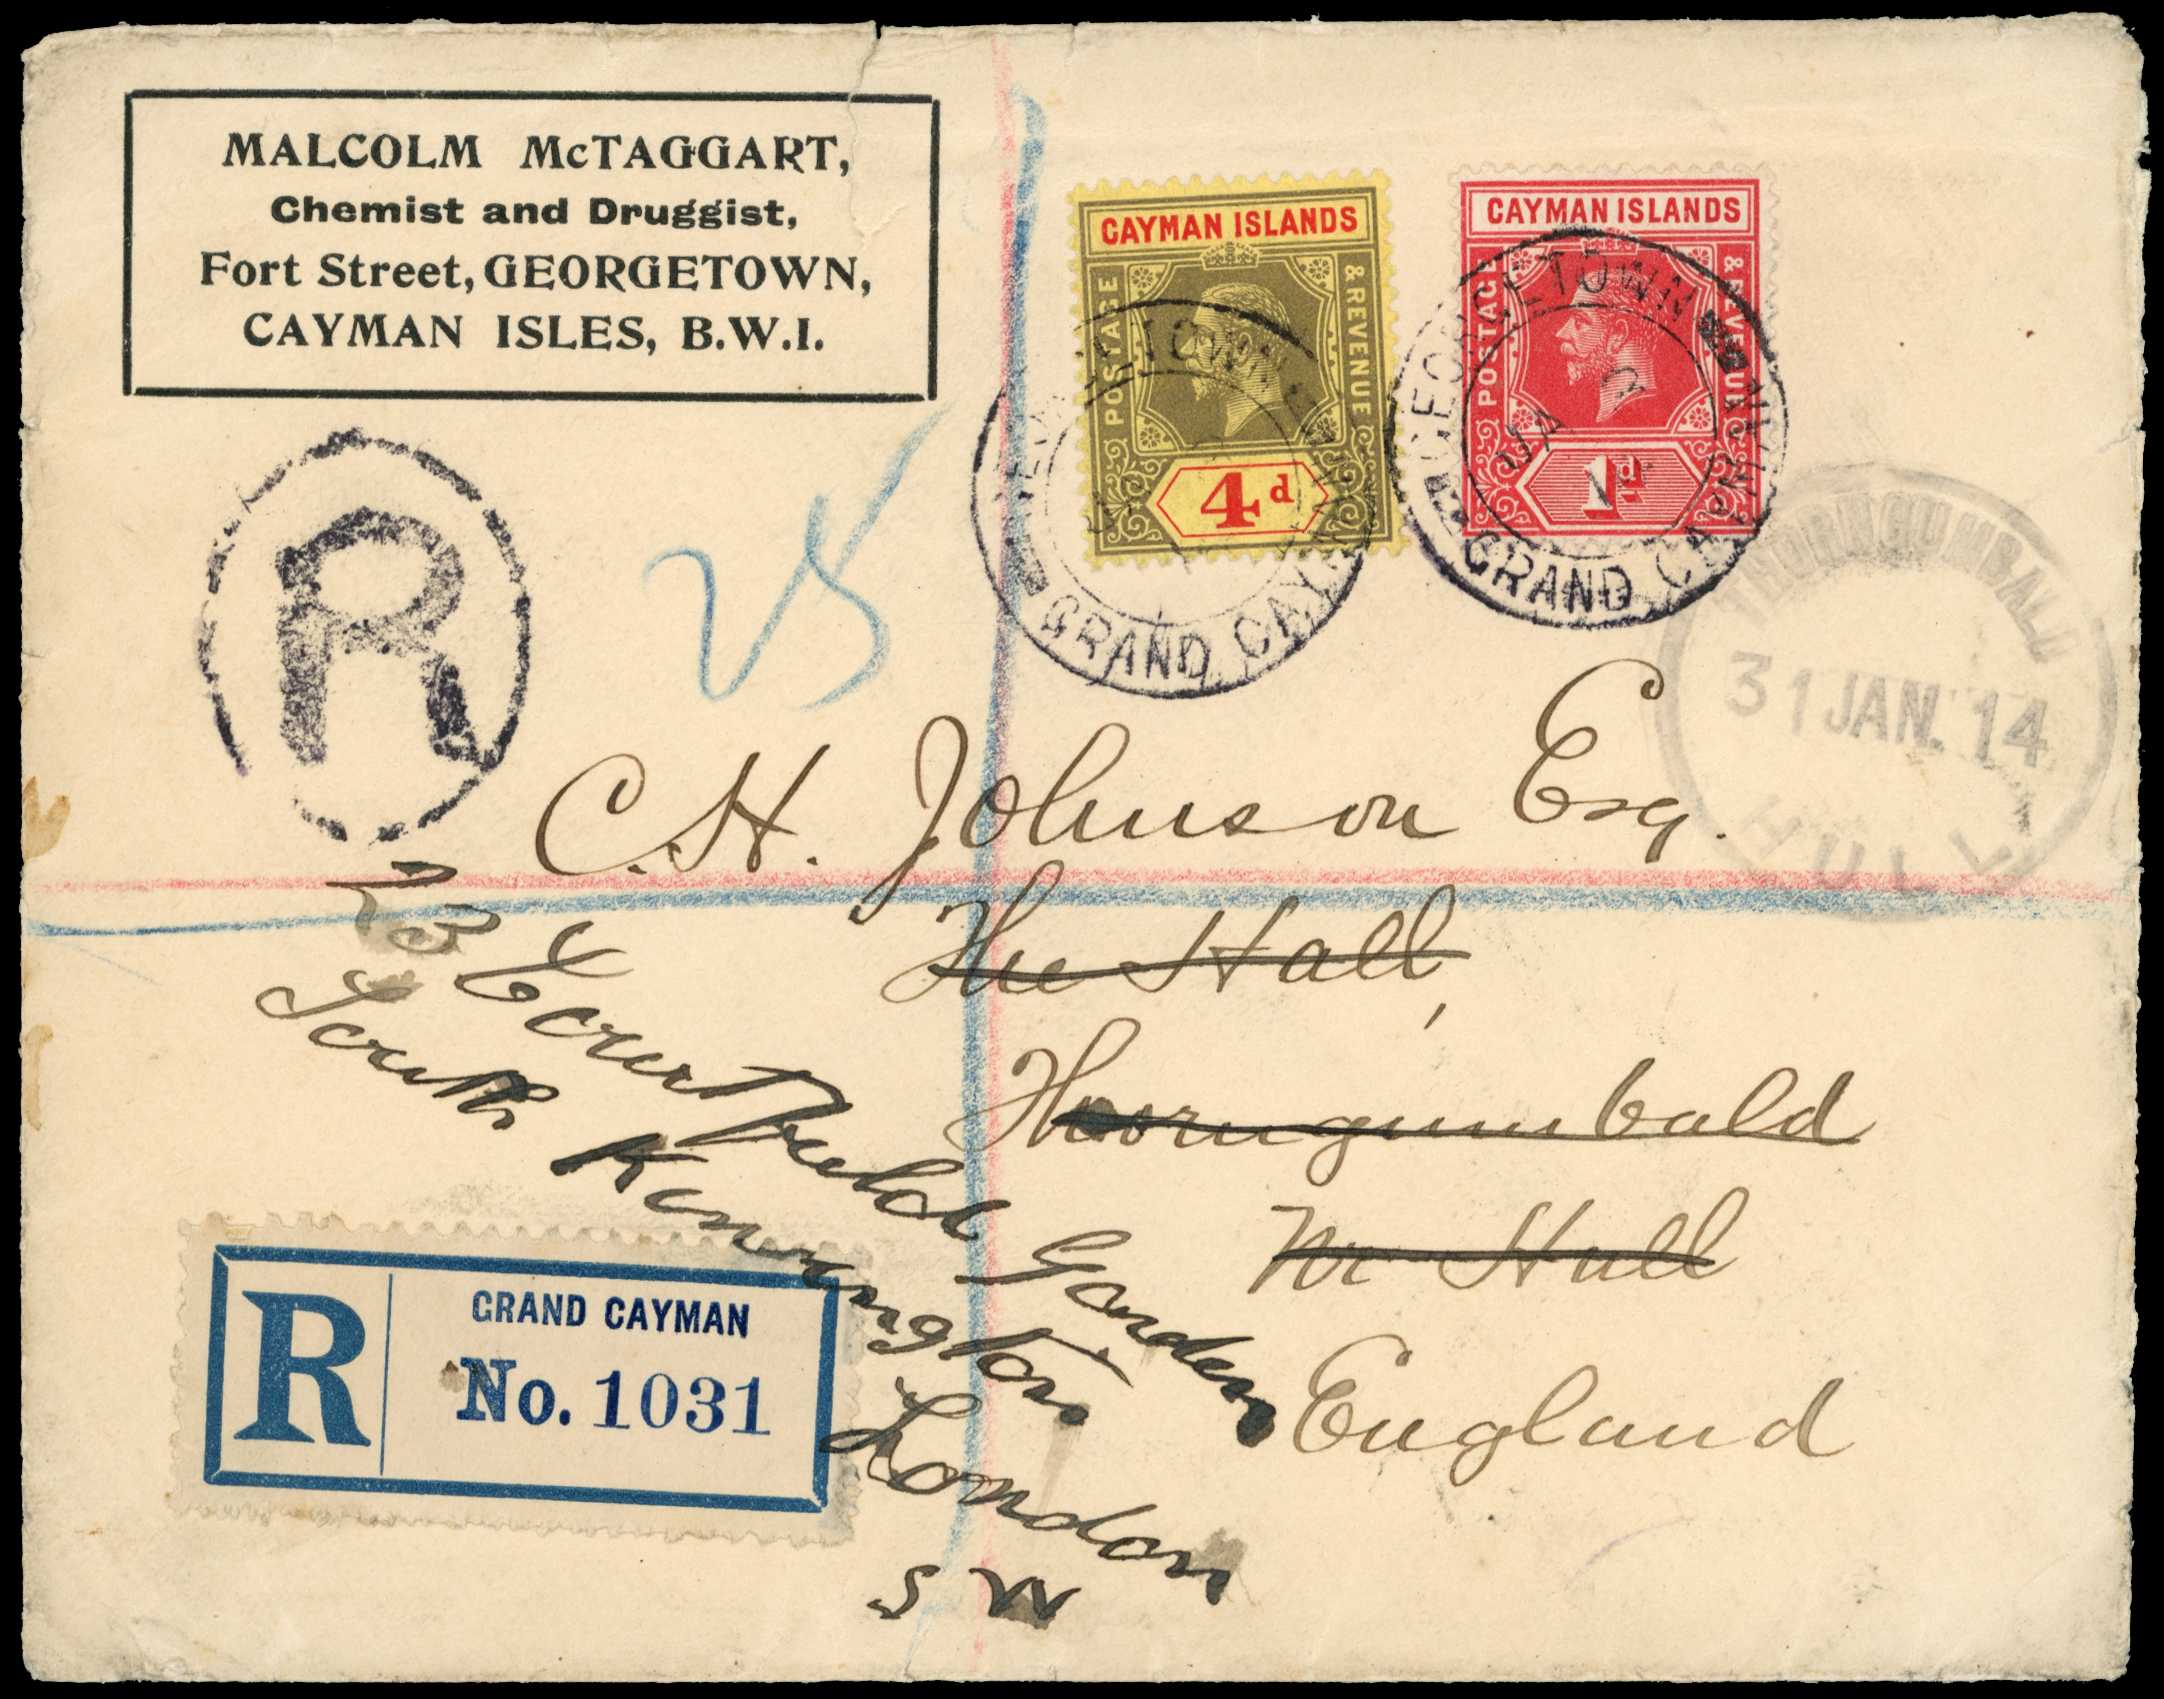 MALCOLM McTAGGART,
Chemist and Druggist,
Fort Street, GEORGETOWN,
CAYMAN ISLES, B.W.I.
CAYMAN ISLANDS
POSTAGE
& REVENUE
4d
CAYMAN ISLANDS
POSTAGE
& REVENUE
1d
GEORGETOWN
GRAND CAYMAN
GEORGETOWN
GRAND CAYMAN
JA
THORNGUMBALD
31 JAN. 14
HULL
R
25
C. H. Johnson Esq.
The Hall,
Thorngumbald
Nr Hull
England
23 Courtfield Gardens
South Kensington
London
S W
R
GRAND CAYMAN
No. 1031